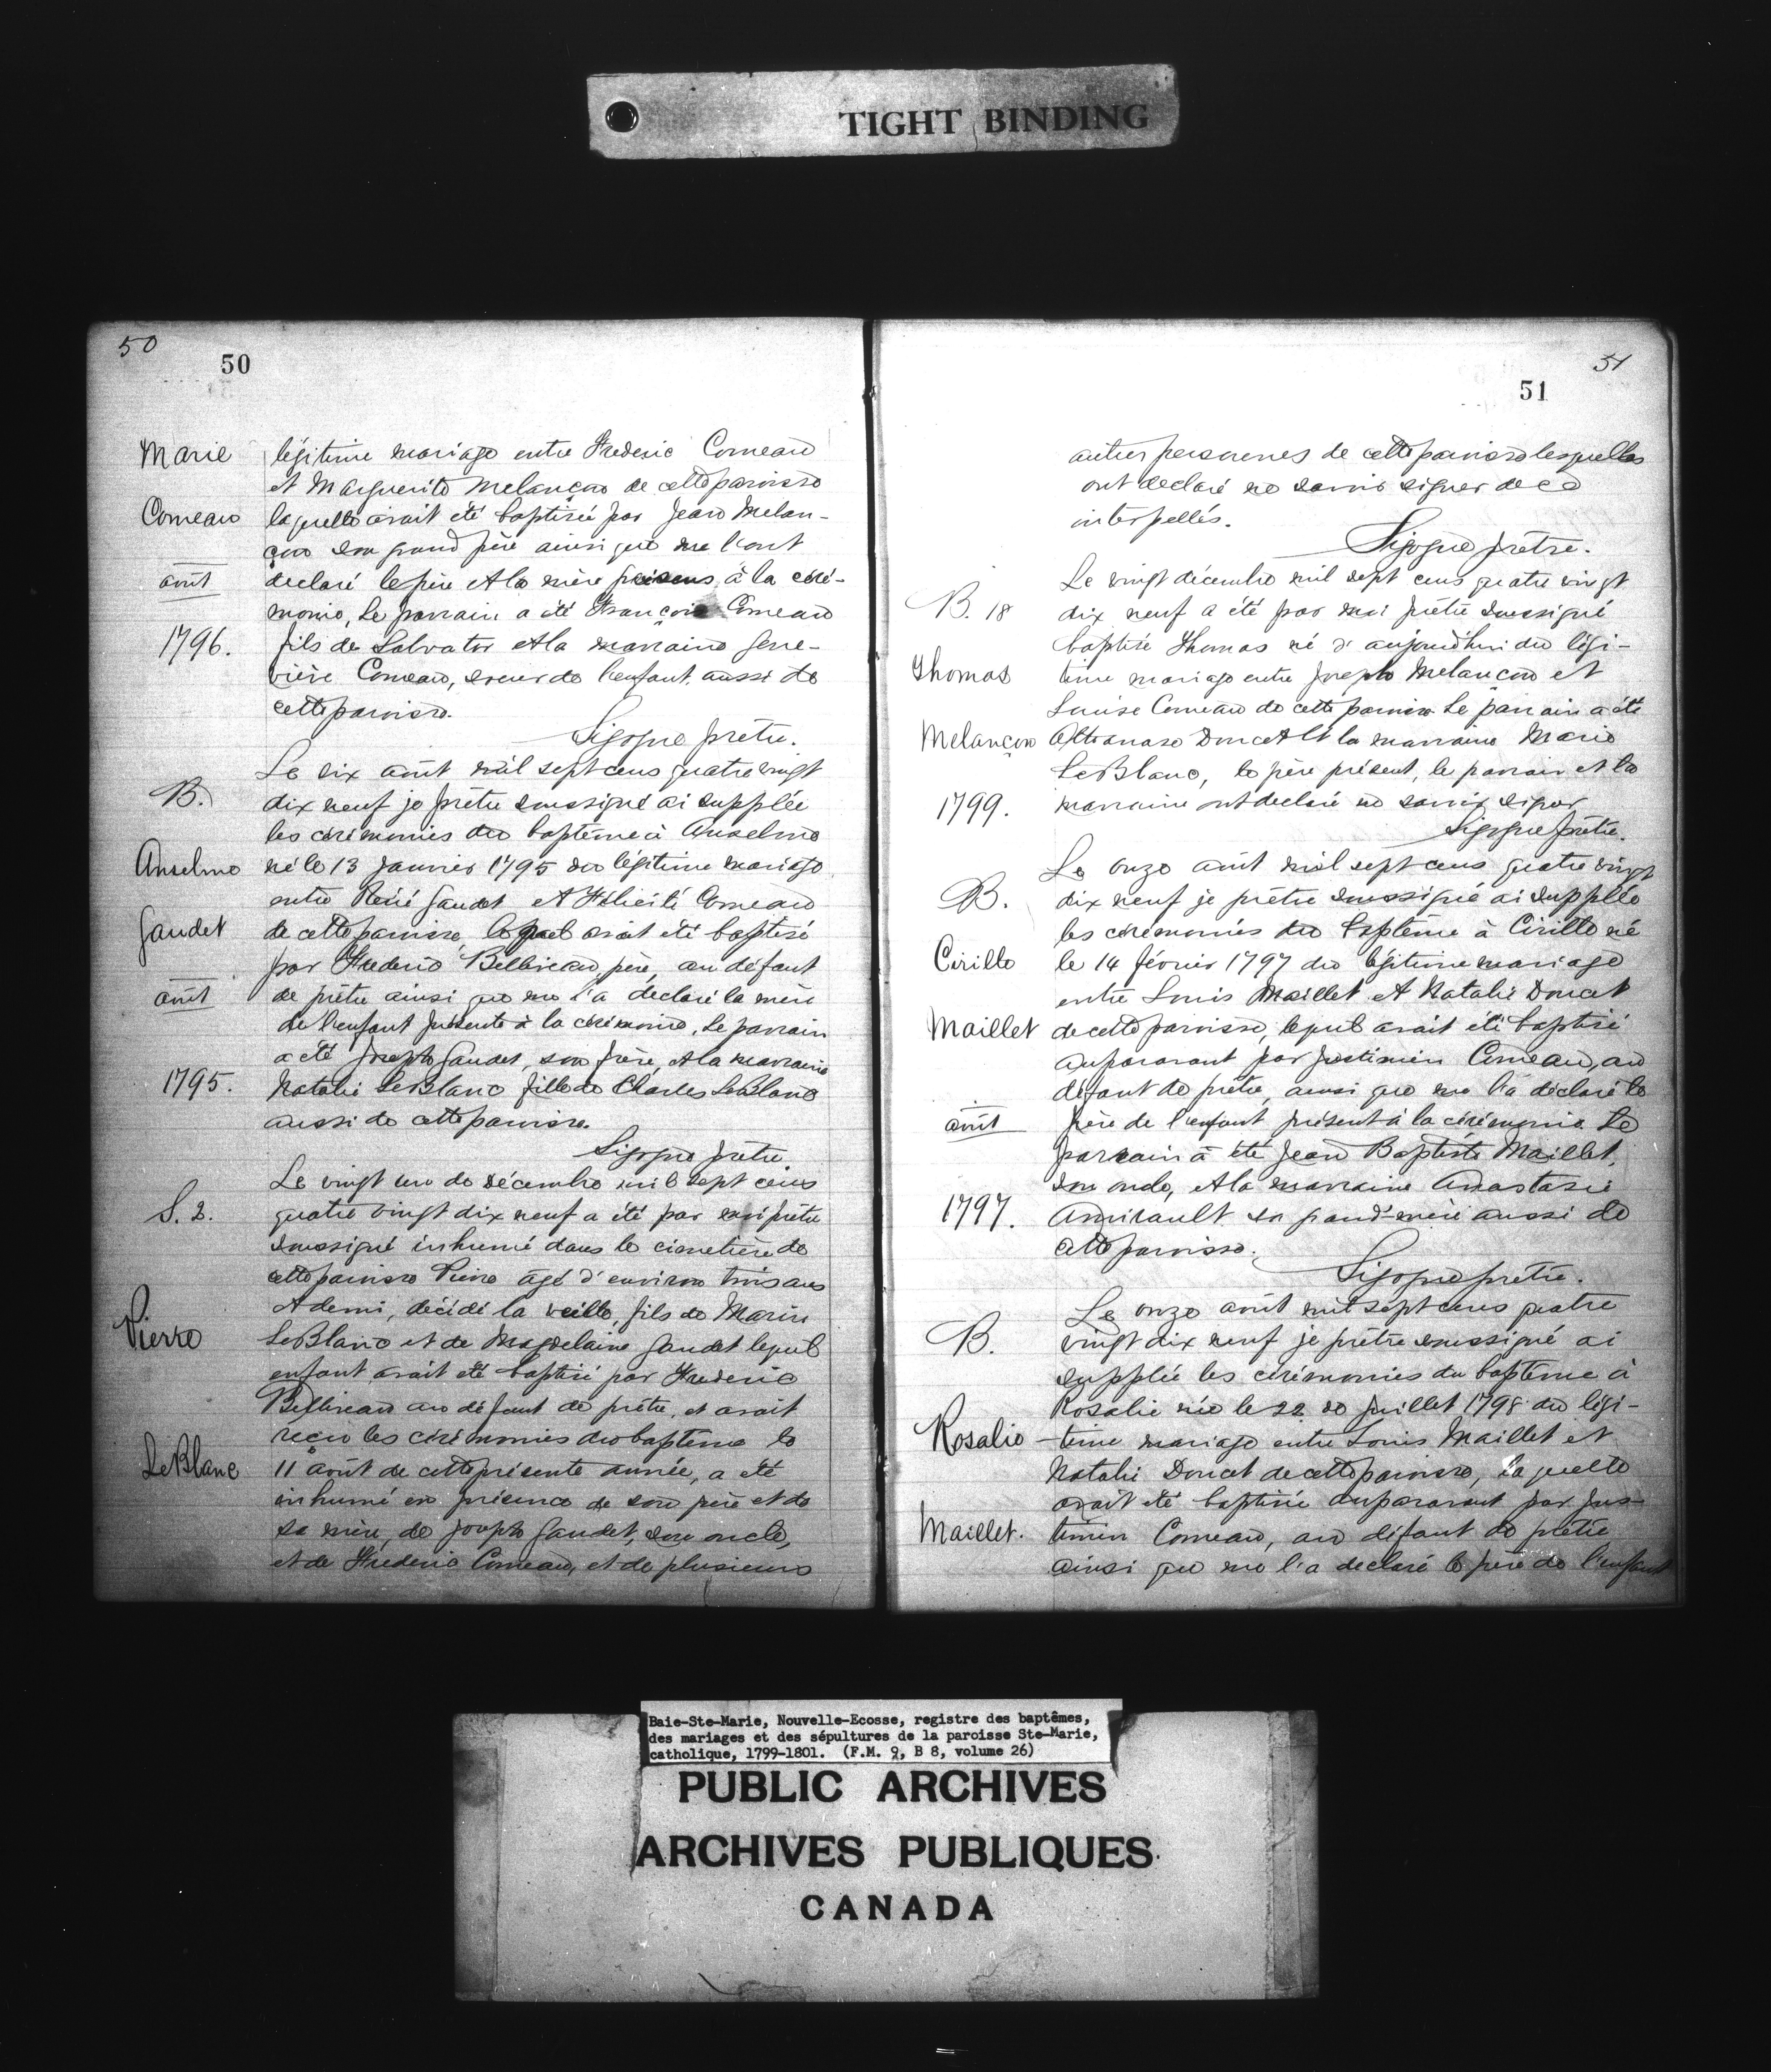 TIGHT BINDING
50
50
Marie
Comeau
août
1796.
légitime mariage entre Frederic Comeau
et Marguerite Melançon de cette paroisse
laquelle avait été baptisée par Jean Melan-
çon son grand père ainsi que me l'ont
declaré le père et la mère présens à la céré-
monie, Le parrain a été François Comeau
fils de Salvator et la marraine Gene-
viève Comeau, soeur de l'enfant aussi de
cette paroisse.
Sigogne prêtre.
B.
Anselme
Gaudet
août
1795.
Le six août mil sept cens quatre vingt
dix neuf je prêtre soussigné ai supplée
les cérémonies du baptême à Anselme
né le 13 janvier 1795 du légitime mariage
entre René Gaudet et Félicité Comeau
de cette paroisse, lequel avait été baptisé
par Frederic Belliveau, père, au défaut
de prêtre ainsi que me l'a declaré la mère
de l'enfant présente à la cérémonie, Le parrain
a été Joseph Gaudet, son frère, et la marraine
Natalie LeBlanc fille de Charles LeBlanc
aussi de cette paroisse.
Sigogne prêtre.
S. 2.
Pierre
LeBlanc
Le vingt un de décembre mil sept cens
quatre vingt dix neuf a été par moi prêtre
soussigné inhumé dans le cimetière de
cette paroisse Pierre âgé d'environ trois ans
et demi, décédé la veille, fils de Marin
LeBlanc et de Magdelaine Gaudet lequel
enfant avait été baptisé par Frederic
Belliveau au défaut de prêtre, et avait
reçu les cérémonies du baptême le
11 août de cette présente année, a été
inhumé en présence de son père et de
sa mère, de Joseph Gaudet, son oncle,
et de Frederic Comeau, et de plusieurs
51
51
autres personnes de cette paroisse lesquelles
ont declaré ne savoir signer de ce
interpellés.
Sigogne prêtre.
B. 18
Thomas
Melançon
1799.
Le vingt décembre mil sept cens quatre vingt
dix neuf a été par moi prêtre soussigné
baptisé Thomas né d'aujourd'hui du légi-
time mariage entre Joseph Melançon et
Louise Comeau de cette paroisse Le parrain a été
Athanase Doucet et la marraine Marie
LeBlanc, le père présent, le parrain et la
marraine ont declaré ne savoir signer
Sigogne prêtre.
B.
Cirille
Maillet
août
1797.
Le onze août mil sept cens quatre vingt
dix neuf je prêtre soussigné ai supplée
les cérémonies du baptême à Cirille né
le 14 février 1797 du légitime mariage
entre Louis Maillet et Natalie Doucet
de cette paroisse, lequel avait été baptisé
auparavant par Justinien Comeau, au
défaut de prêtre, ainsi que me l'a déclaré le
père de l'enfant présent à la cérémonie Le
parrain à été Jean Baptiste Maillet,
son oncle, et la marraine Anastasie
Amirault sa grand'mère aussi de
cette paroisse.
Sigogne prêtre.
B.
Rosalie
Maillet.
Le onze août mil sept cens quatre
vingt dix neuf je prêtre soussigné ai
supplée les cérémonies du baptême à
Rosalie née le 22 de juillet 1798 du légi-
-time mariage entre Louis Maillet et
Natalie Doucet de cette paroisse, laquelle
avait été baptisée auparavant par Jus-
tinien Comeau, au défaut de prêtre
ainsi que me l'a declaré le père de l'enfant
Baie-Ste-Marie, Nouvelle-Ecosse, registre des baptêmes,
des mariages et des sépultures de la paroisse Ste-Marie,
catholique, 1799-1801. (F.M. 9, B 8, volume 26)
PUBLIC ARCHIVES
ARCHIVES PUBLIQUES
CANADA